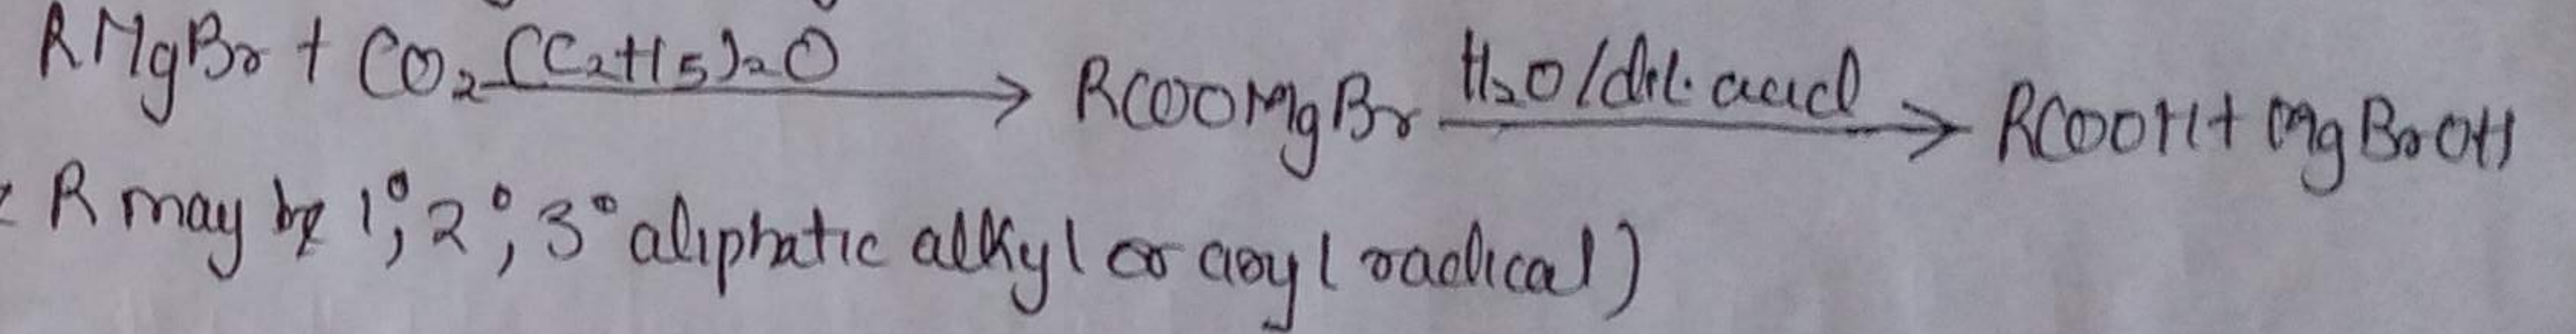 RMgBr + CO₂ (C₂H₅)₂O → RCOOMgBr H₂O/dil. acid → RCOOH + MgBrOH
( R may be 1°, 2°, 3° aliphatic alkyl or aryl radical )